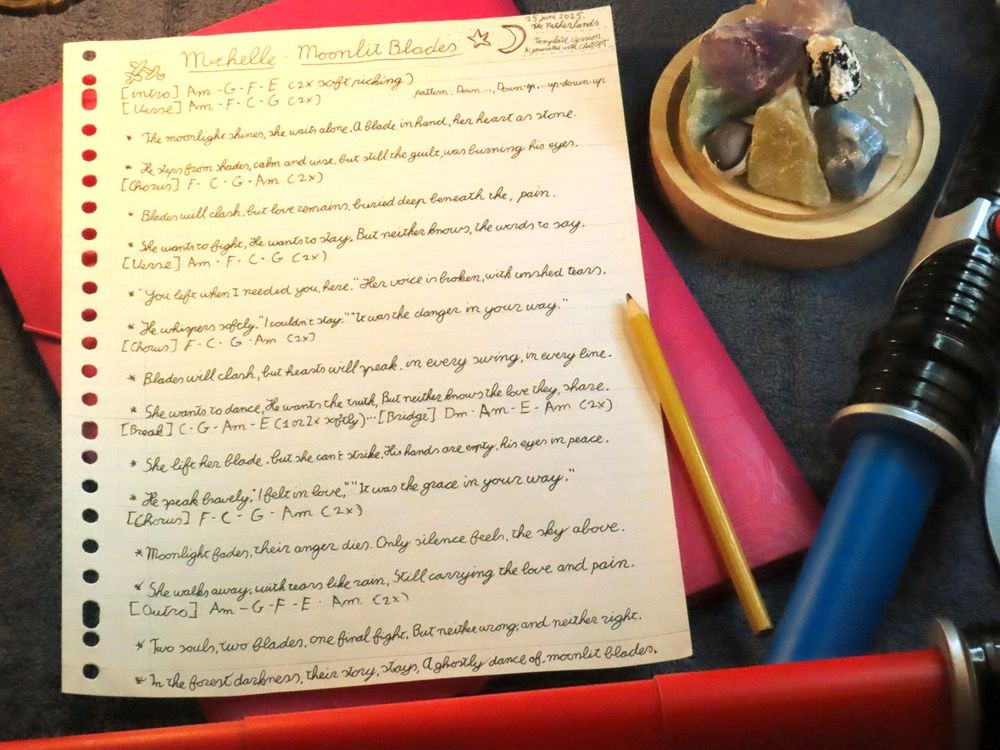 Michelle - Moonlit Blades
25 June 2025.
The Netherlands
Template version
generated with ChatGPT.
[Intro] Am - G - F - E (2x soft picking)
[Verse] Am - F - C - G (2x)
pattern: Down..., Down-up... - up-down-up
* The moonlight shines, she waits alone, A blade in hand, her heart as stone.
* He steps from shades, calm and wise, but still the guilt, was burning his eyes.
[Chorus] F - C - G - Am (2x)
* Blades will clash, but love remains, buried deep beneath the, pain.
* She wants to fight, He wants to stay. But neither knows, the words to say.
[Verse] Am - F - C - G (2x)
* "You left when I needed you, here." Her voice is broken, with unshed tears.
* He whispers softly. "I couldn't stay." "It was the danger in your way."
[Chorus] F - C - G - Am (2x)
* Blades will clash, but hearts will speak. in every swing, in every line.
* She wants to dance, He wants the truth, But neither knows the love they, share.
[Break] C - G - Am - E (1 or 2x softly)... [Bridge] Dm - Am - E - Am (2x)
* She lift her blade, but she can't strike. His hands are empty, his eyes in peace.
* He speak bravely, "I felt in love," "It was the grace in your way."
[Chorus] F - C - G - Am (2x)
* Moonlight fades, their anger dies. Only silence feels, the sky above.
* She walks away, with tears like rain, Still carrying the love and pain.
[Outro] Am - G - F - E - Am (2x)
* Two souls, two blades, one final fight. But neither wrong, and neither right.
* In the forest darkness, their story, stays, A ghostly dance of, moonlit blades.